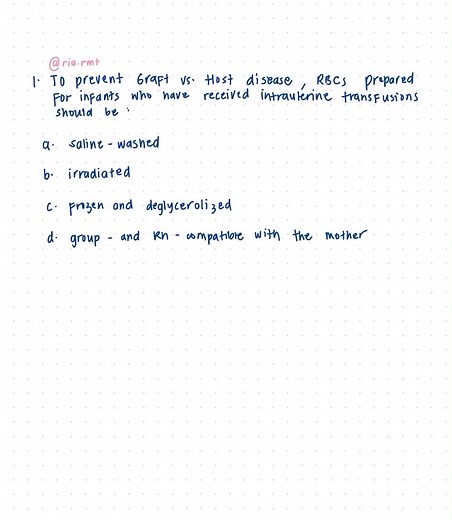 @ria.rmt
1. To prevent Graft vs. Host disease, RBCs prepared
For infants who have received intrauterine transfusions
should be:
a. saline-washed
b. irradiated
c. frozen and deglycerolized
d. group- and Rh-compatible with the mother